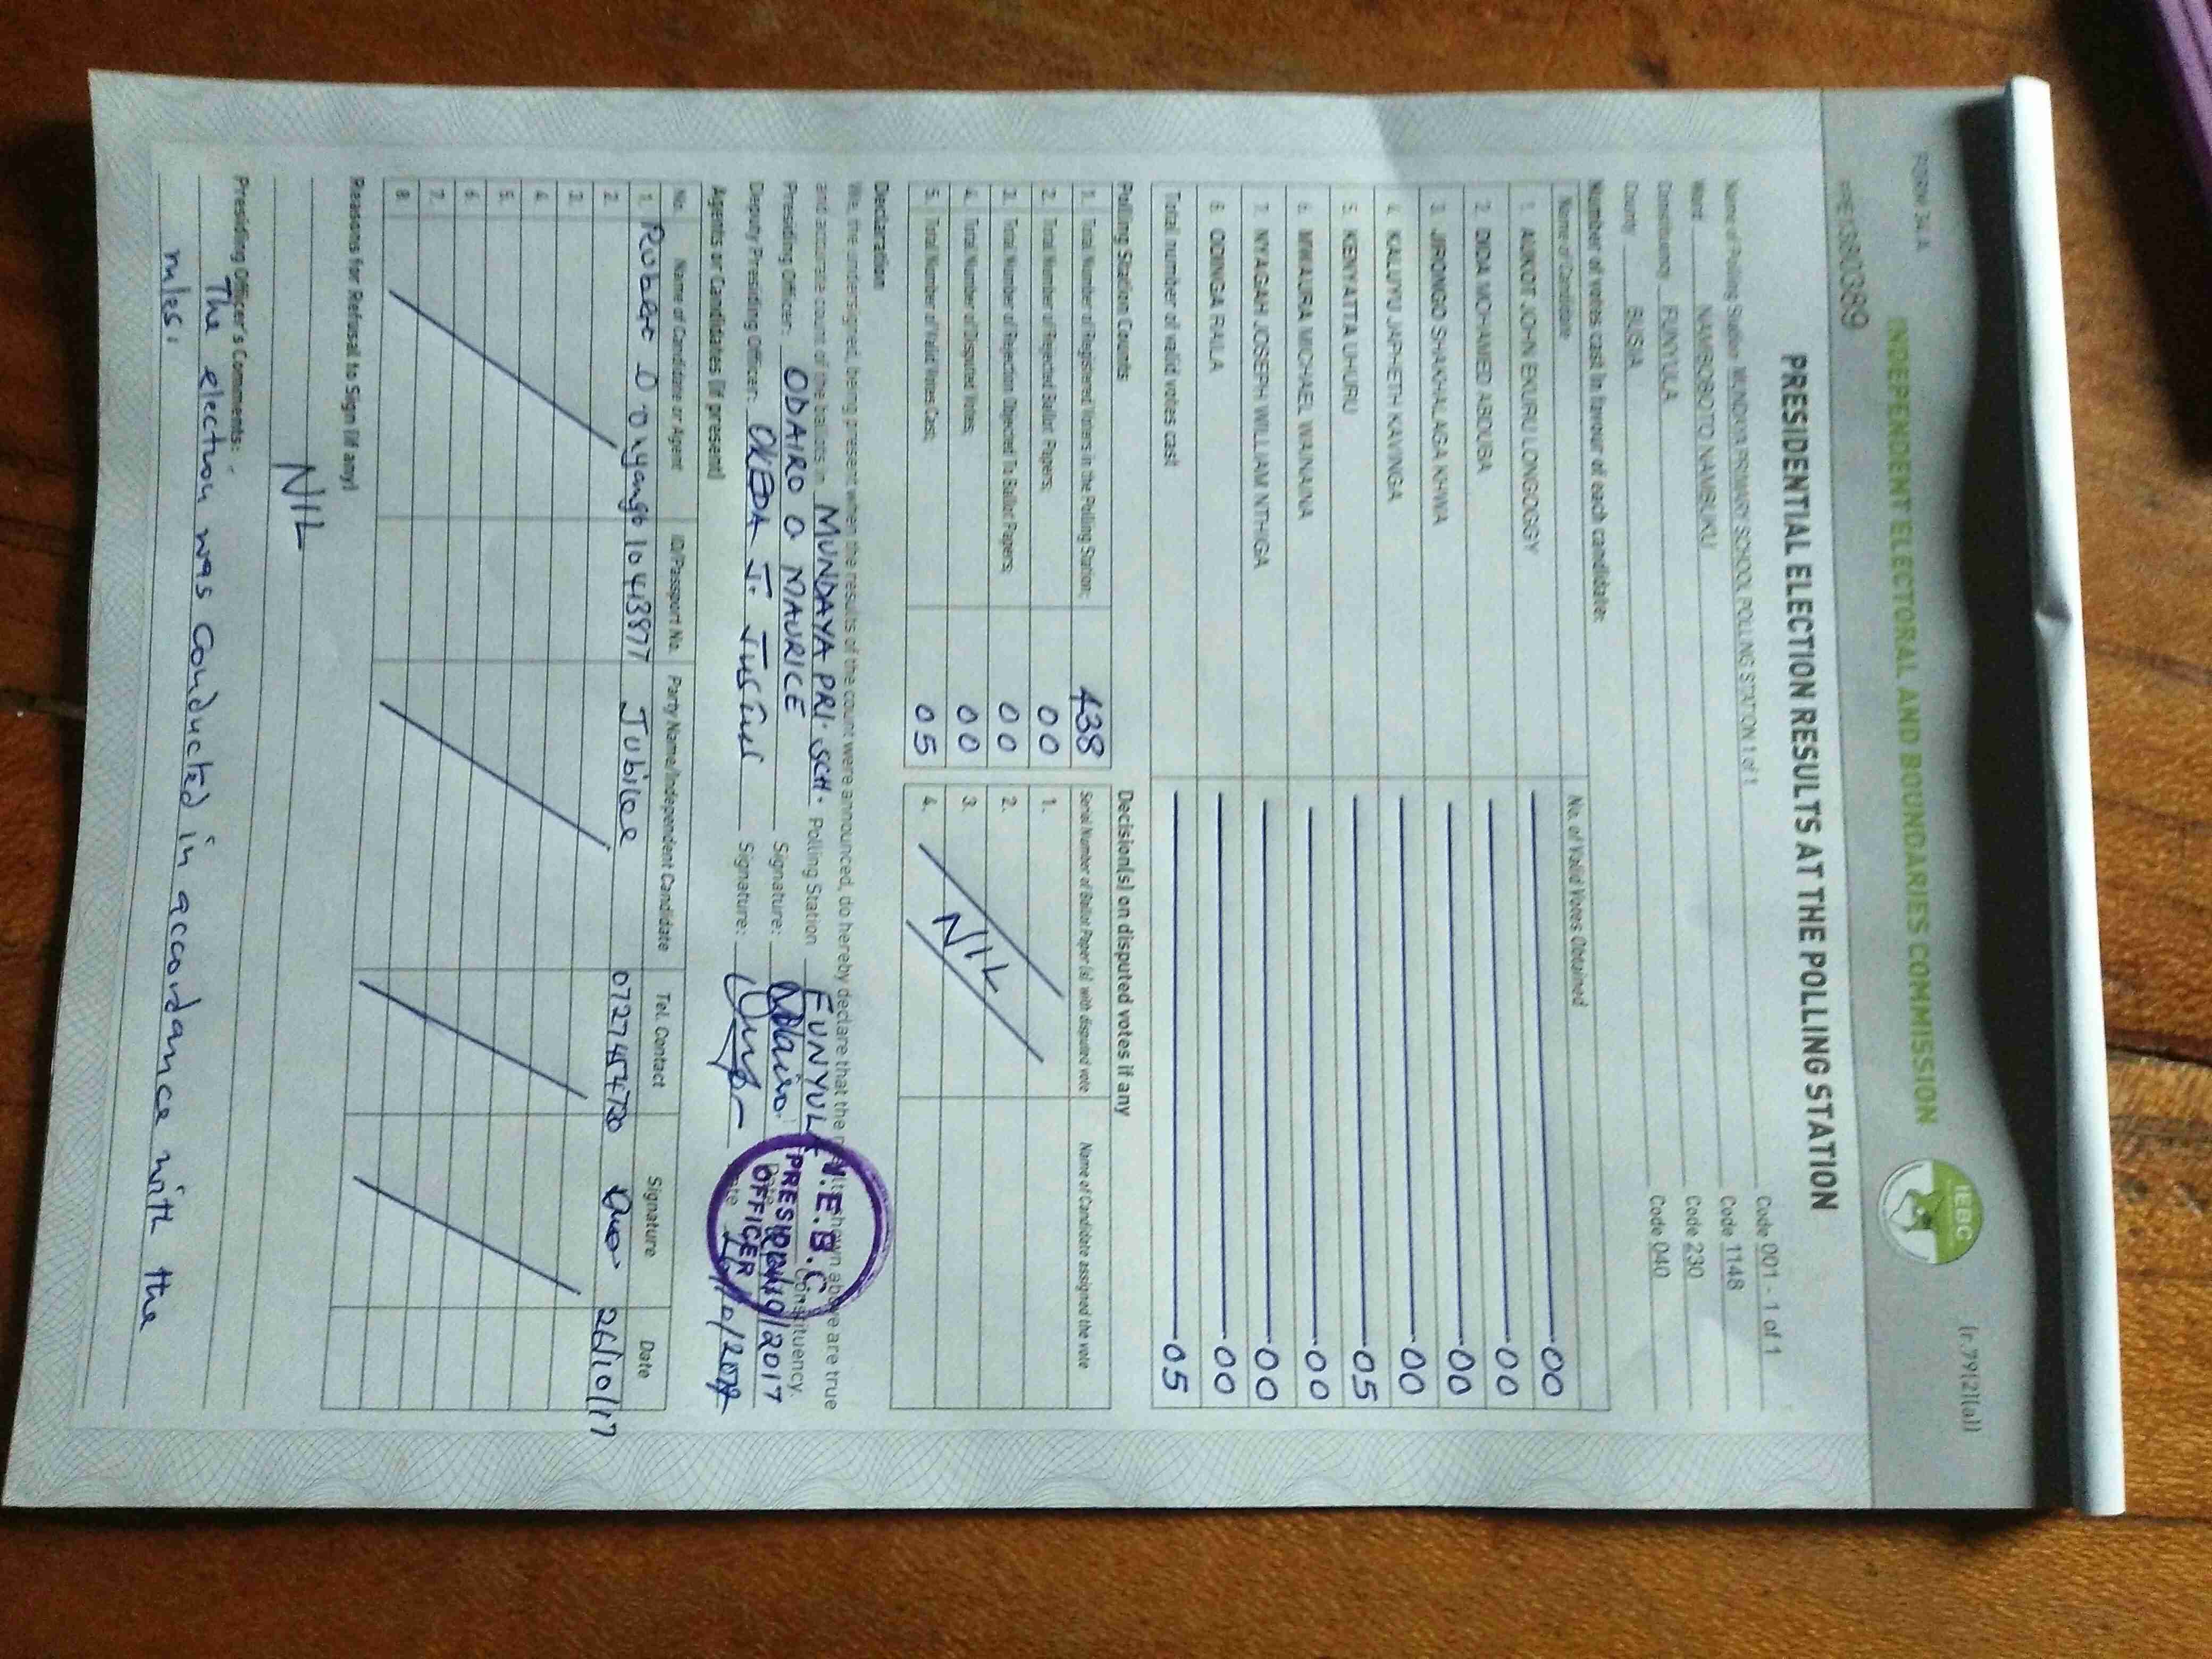 FORM 34 A
(r.79(2)(a))
INDEPENDENT ELECTORAL AND BOUNDARIES COMMISSION
IEBC
PRE380389
PRESIDENTIAL ELECTION RESULTS AT THE POLLING STATION
Name of Polling Station MUNDAYA PRIMARY SCHOOL POLLING STATION 1 of 1 Code 001 - 1 of 1
Ward NAMBOBOTO NAMBUKU Code 1148
Constituency FUNYULA Code 230
County BUSIA Code 040
Number of votes cast in favour of each candidate:
Name of Candidate No. of Valid Votes Obtained
1. AUKOT JOHN EKURU LONGOGGY 00
2. DIDA MOHAMED ABDUBA 00
3. JIRONGO SHAKHALAGA KHWA 00
4. KALUYU JAPHETH KAVINGA 00
5. KENYATTA UHURU 05
6. MWAURA MICHAEL WAINAINA 00
7. NYAGAH JOSEPH WILLIAM NTHIGA 00
8. ODINGA RAILA 00
Total number of valid votes cast 05
Polling Station Counts
1. Total Number of Registered Voters in the Polling Station; 438
2. Total Number of Rejected Ballot Papers; 00
3. Total Number of Rejection Objected To Ballot Papers; 00
4. Total Number of Disputed Votes; 00
5. Total Number of Valid Votes Cast; 05
Decision(s) on disputed votes if any
Serial Number of Ballot Paper (s) with disputed vote Name of Candidate assigned the vote
1.
2.
3.
4.
NIL
Declaration
We, the undersigned, being present when the results of the count were announced, do hereby declare that the results shown above are true
and accurate count of the ballots in MUNDAYA PRI. SCH. Polling Station FUNYULA Constituency.
Presiding Officer: ODAIRO O MAURICE Signature: Odairo Date /10/2017
Deputy Presiding Officer: OKEDA J. Signature: Date /10/2017
I.E.B.C
PRESIDING
OFFICER
Agents or Candidates (if present)
No. Name of Candidate or Agent ID/Passport No. Party Name/Independent Candidate Tel. Contact Signature Date
1. Robert O Onyango 10413897 Jubilee 26/10/17
2.
3.
4.
5.
6.
7.
8.
Reasons for Refusal to Sign (if any)
NIL
Presiding Officer's Comments:
The election was conducted in accordance with the
rules.